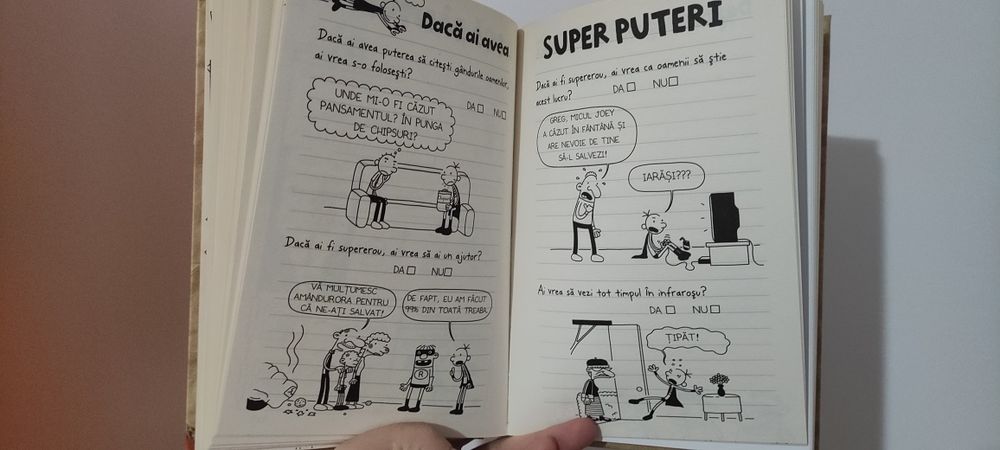 Dacă ai avea
Dacă ai avea puterea să citești gândurile oamenilor,
ai vrea s-o folosești?
DA NU
UNDE MI-O FI CĂZUT
PANSAMENTUL? ÎN PUNGA
DE CHIPSURI?
Dacă ai fi supererou, ai vrea să ai un ajutor?
DA NU
VĂ MULȚUMESC
AMÂNDURORA PENTRU
CĂ NE-AȚI SALVAT!
DE FAPT, EU AM FĂCUT
99% DIN TOATĂ TREABA.
R
SUPER PUTERI
Dacă ai fi supererou, ai vrea ca oamenii să știe
acest lucru?
DA NU
GREG, MICUL JOEY
A CĂZUT ÎN FÂNTÂNĂ ȘI
ARE NEVOIE DE TINE
SĂ-L SALVEZI!
IARĂȘI???
Ai vrea să vezi tot timpul în infraroșu?
DA NU
ȚIPĂT!